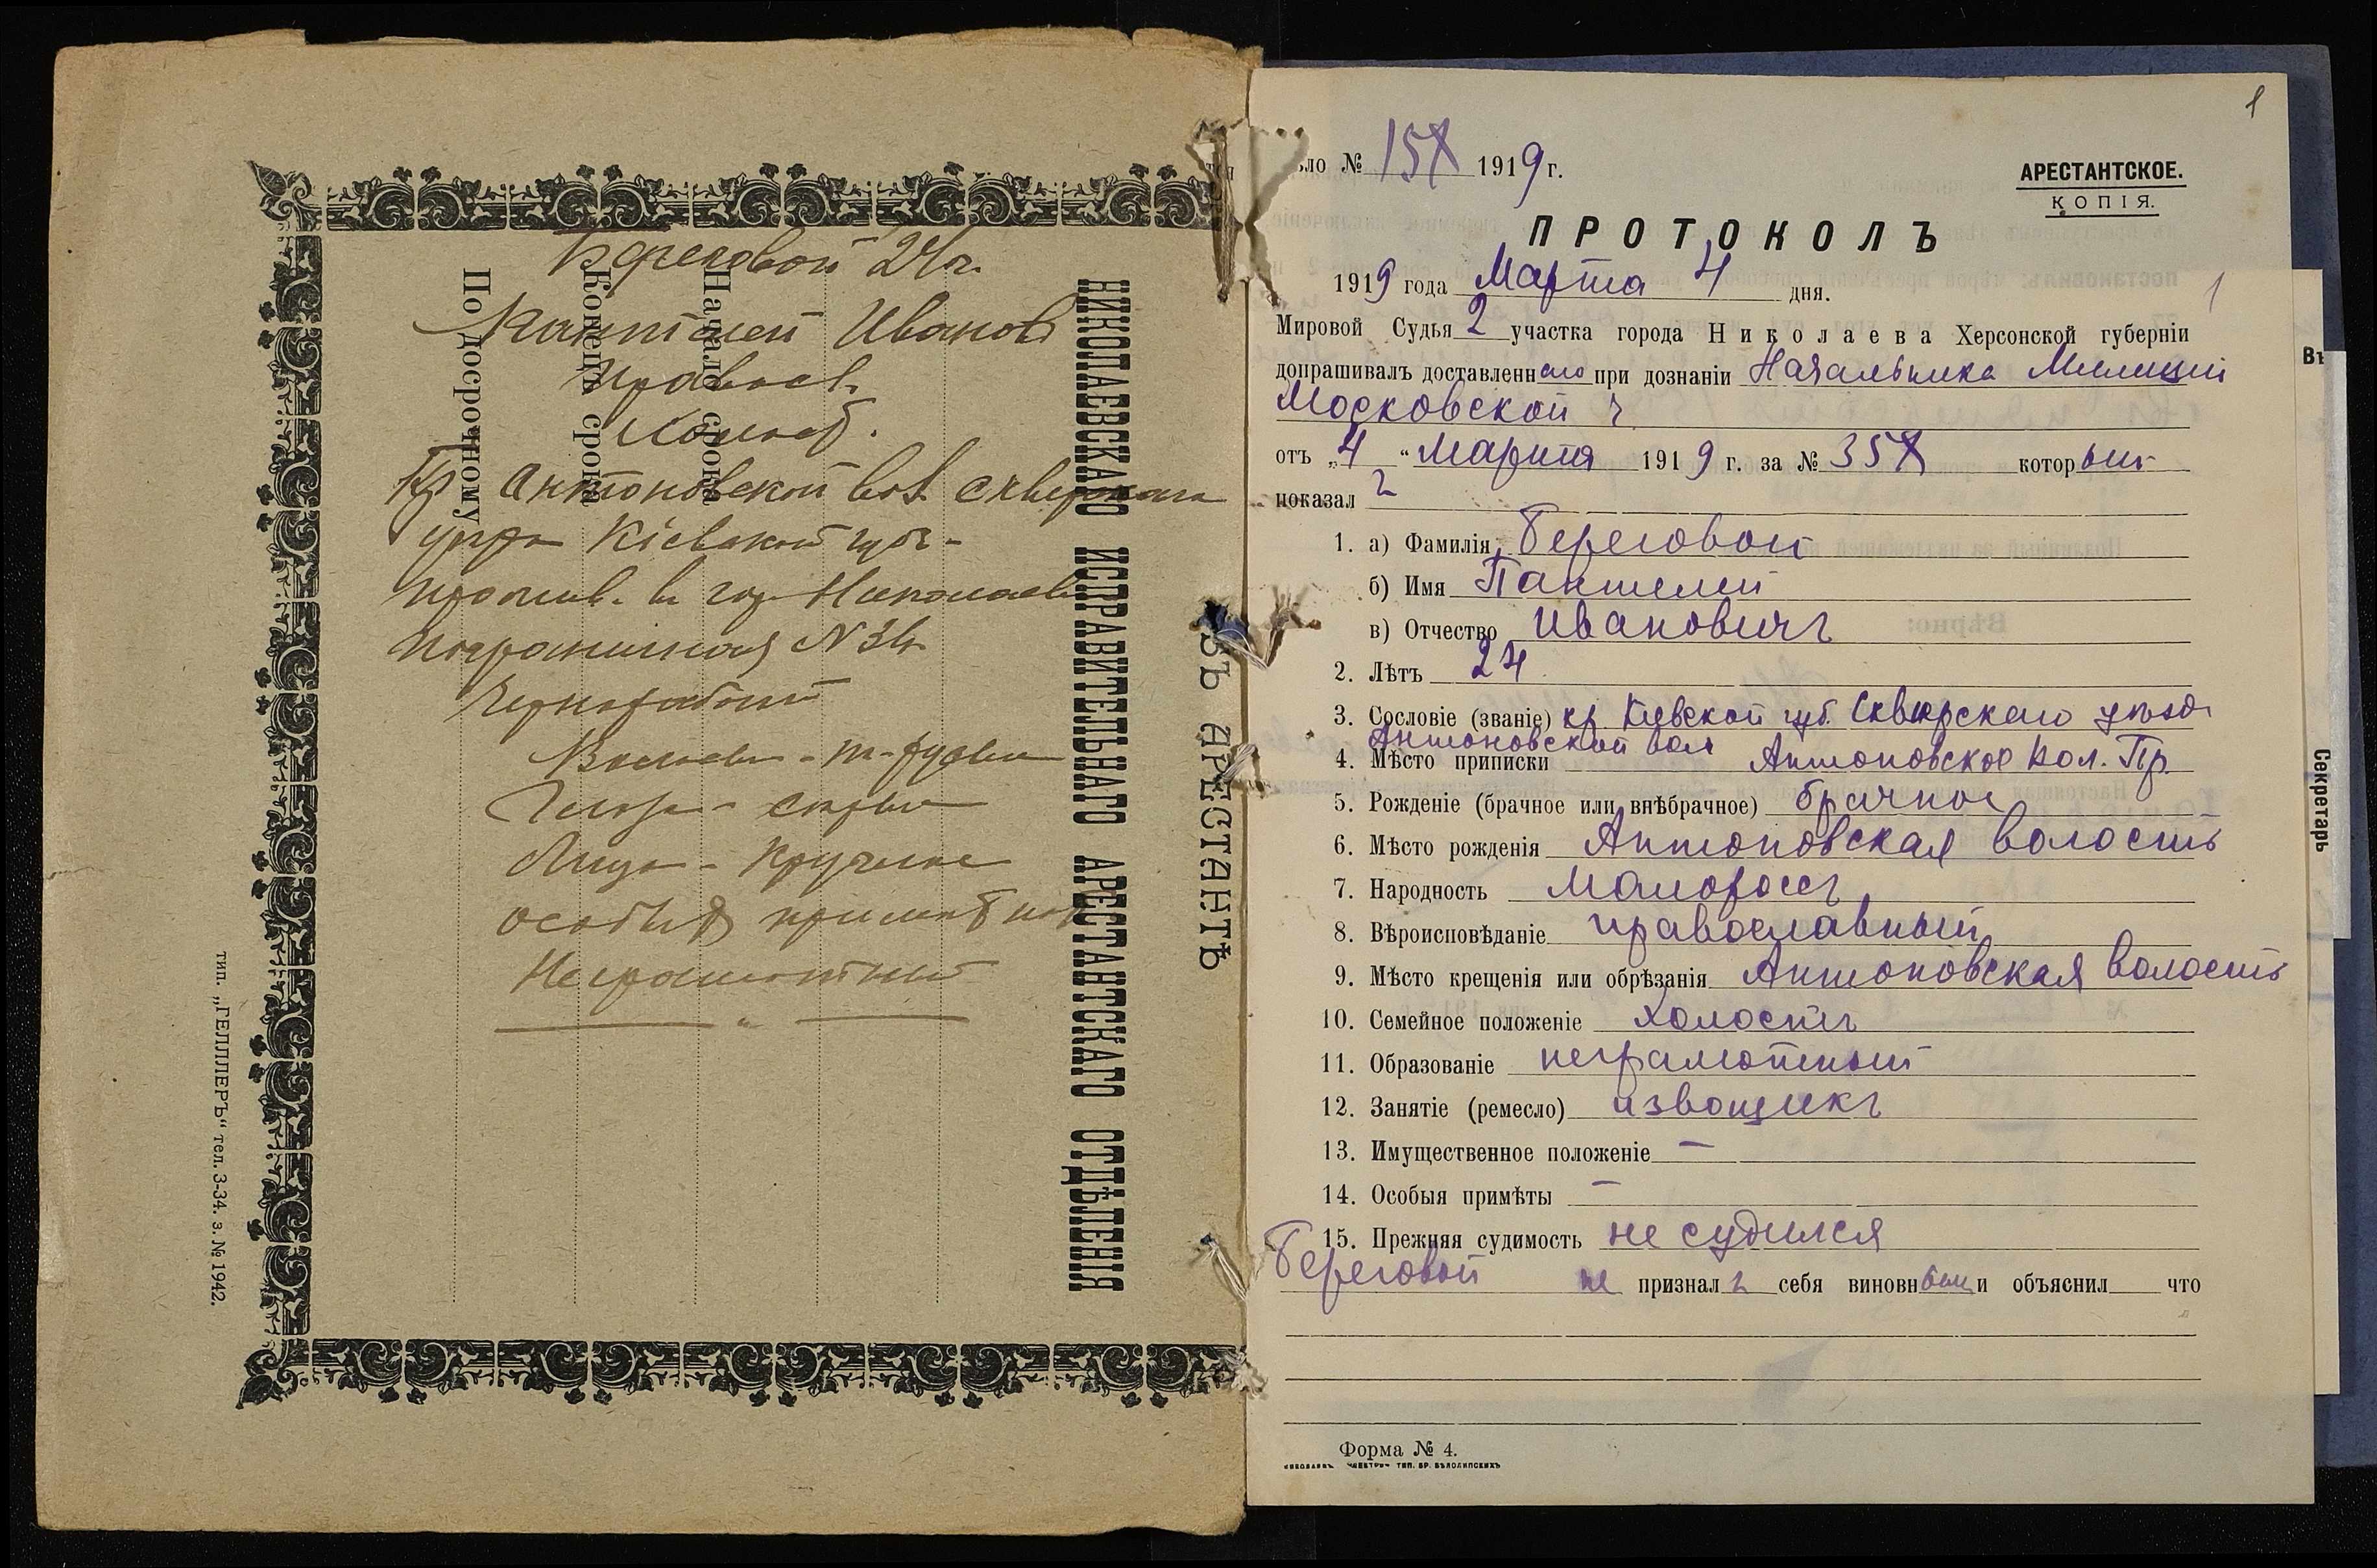 Береговой 24 л.
Пантелей Иванов
Правосл.
Холост.
Кр Антоновской вол Сквирскаго
уезда Кіевской губ-
прожив. в гор Николаеве
Пограничная №34
Чернорабочий
Волосы - т-русые
Глаза - серые
Лицо - круглое
особыя примет нет
Неграмотный
По досрочному
Конецъ срока
Начало срока
НИКОЛАЕВСКАГО ИСПРАВИТЕЛЬНАГО АРЕСТАНТСКАГО ОТДѢЛЕНІЯ
АРЕСТАНТЪ
тип. „ГЕЛЛЛЕРЪ“ тел. 3-34. з. № 1942.
1
ло № 157 1919 г.
АРЕСТАНТСКОЕ.
КОПІЯ.
ПРОТОКОЛЪ
1919 года Марта 4 дня.
1
Мировой Судья 2 участка города Николаева Херсонской губерніи
допрашивалъ доставленнаго при дознаніи Начальника Милиціи
Московской ч
отъ „4“ Марта 1919 г. за № 357 который
показалъ
1. а) Фамилія Береговой
б) Имя Пантелей
в) Отчество Ивановичъ
2. Лѣтъ 24
3. Сословіе (званіе) кр. Кіевской губ. Сквирскаго уѣзда
Антоновской вол
4. Мѣсто приписки Антоновское вол. Пр.
5. Рожденіе (брачное или внѣбрачное) брачное
6. Мѣсто рожденія Антоновская волость
7. Народность Малороссъ
8. Вѣроисповѣданіе православный
9. Мѣсто крещенія или обрѣзанія Антоновская волость
10. Семейное положеніе холостъ
11. Образованіе неграмотный
12. Занятіе (ремесло) извощикъ
13. Имущественное положеніе —
14. Особыя примѣты —
15. Прежняя судимость не судился
Береговой не призналъ себя виновным и объяснил что
Форма № 4.
Въ
Секретарь